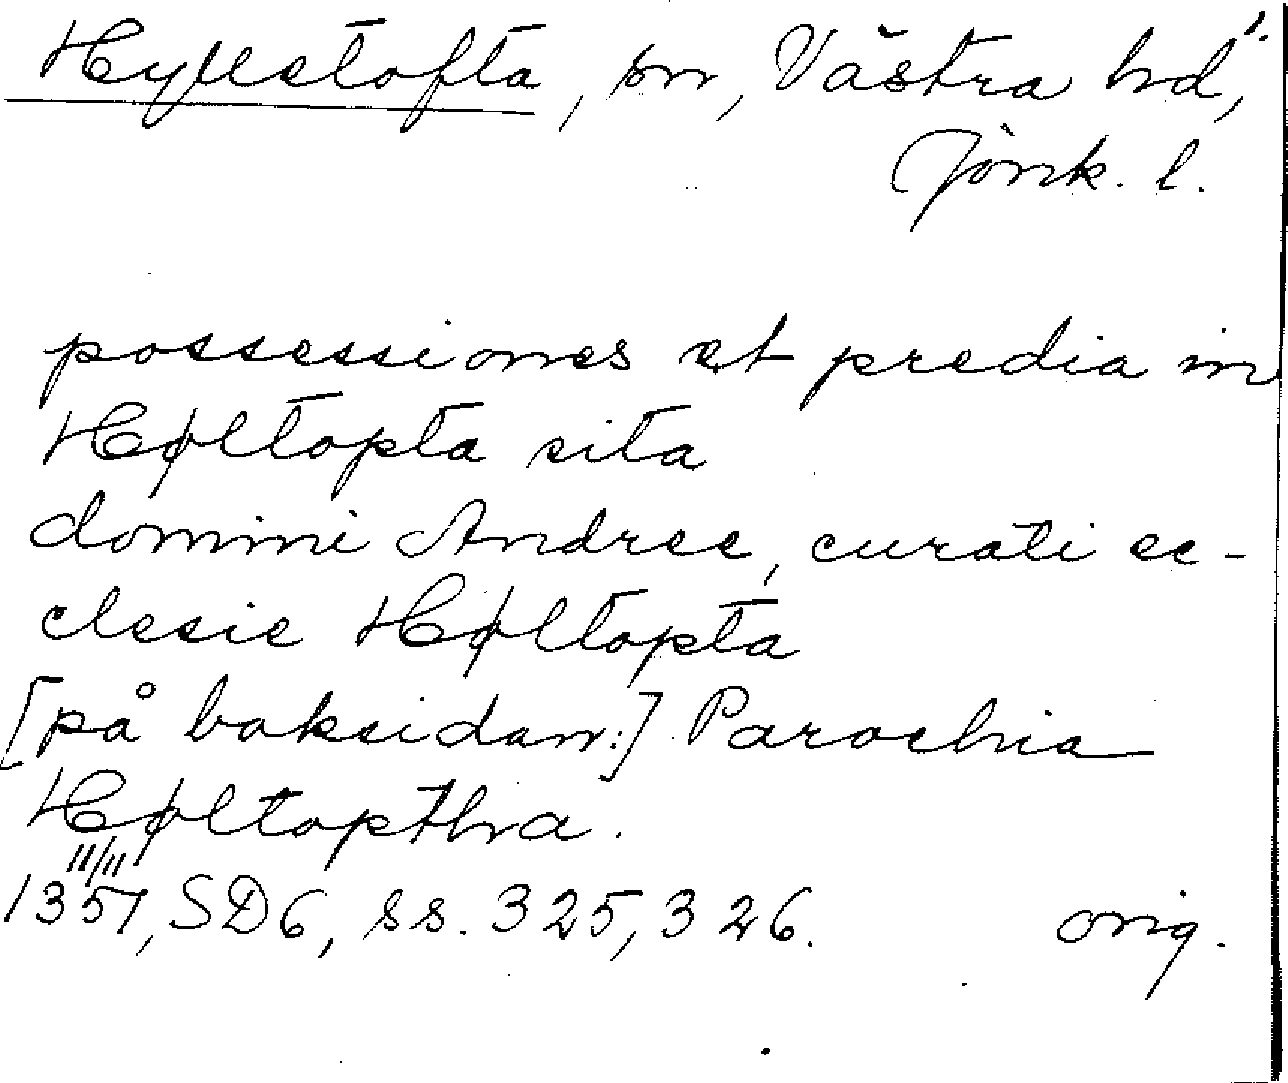 Hyllestofta, sn, Västra hd, 1.
Jönk. l.
possessiones et predia in
Høltopta sita
domini Andree, curati ec-
clesie Høltopta
[på baksidan:] Parochia
Høltoptha.
11/11
1357, SD6, ss. 325, 326. orig.